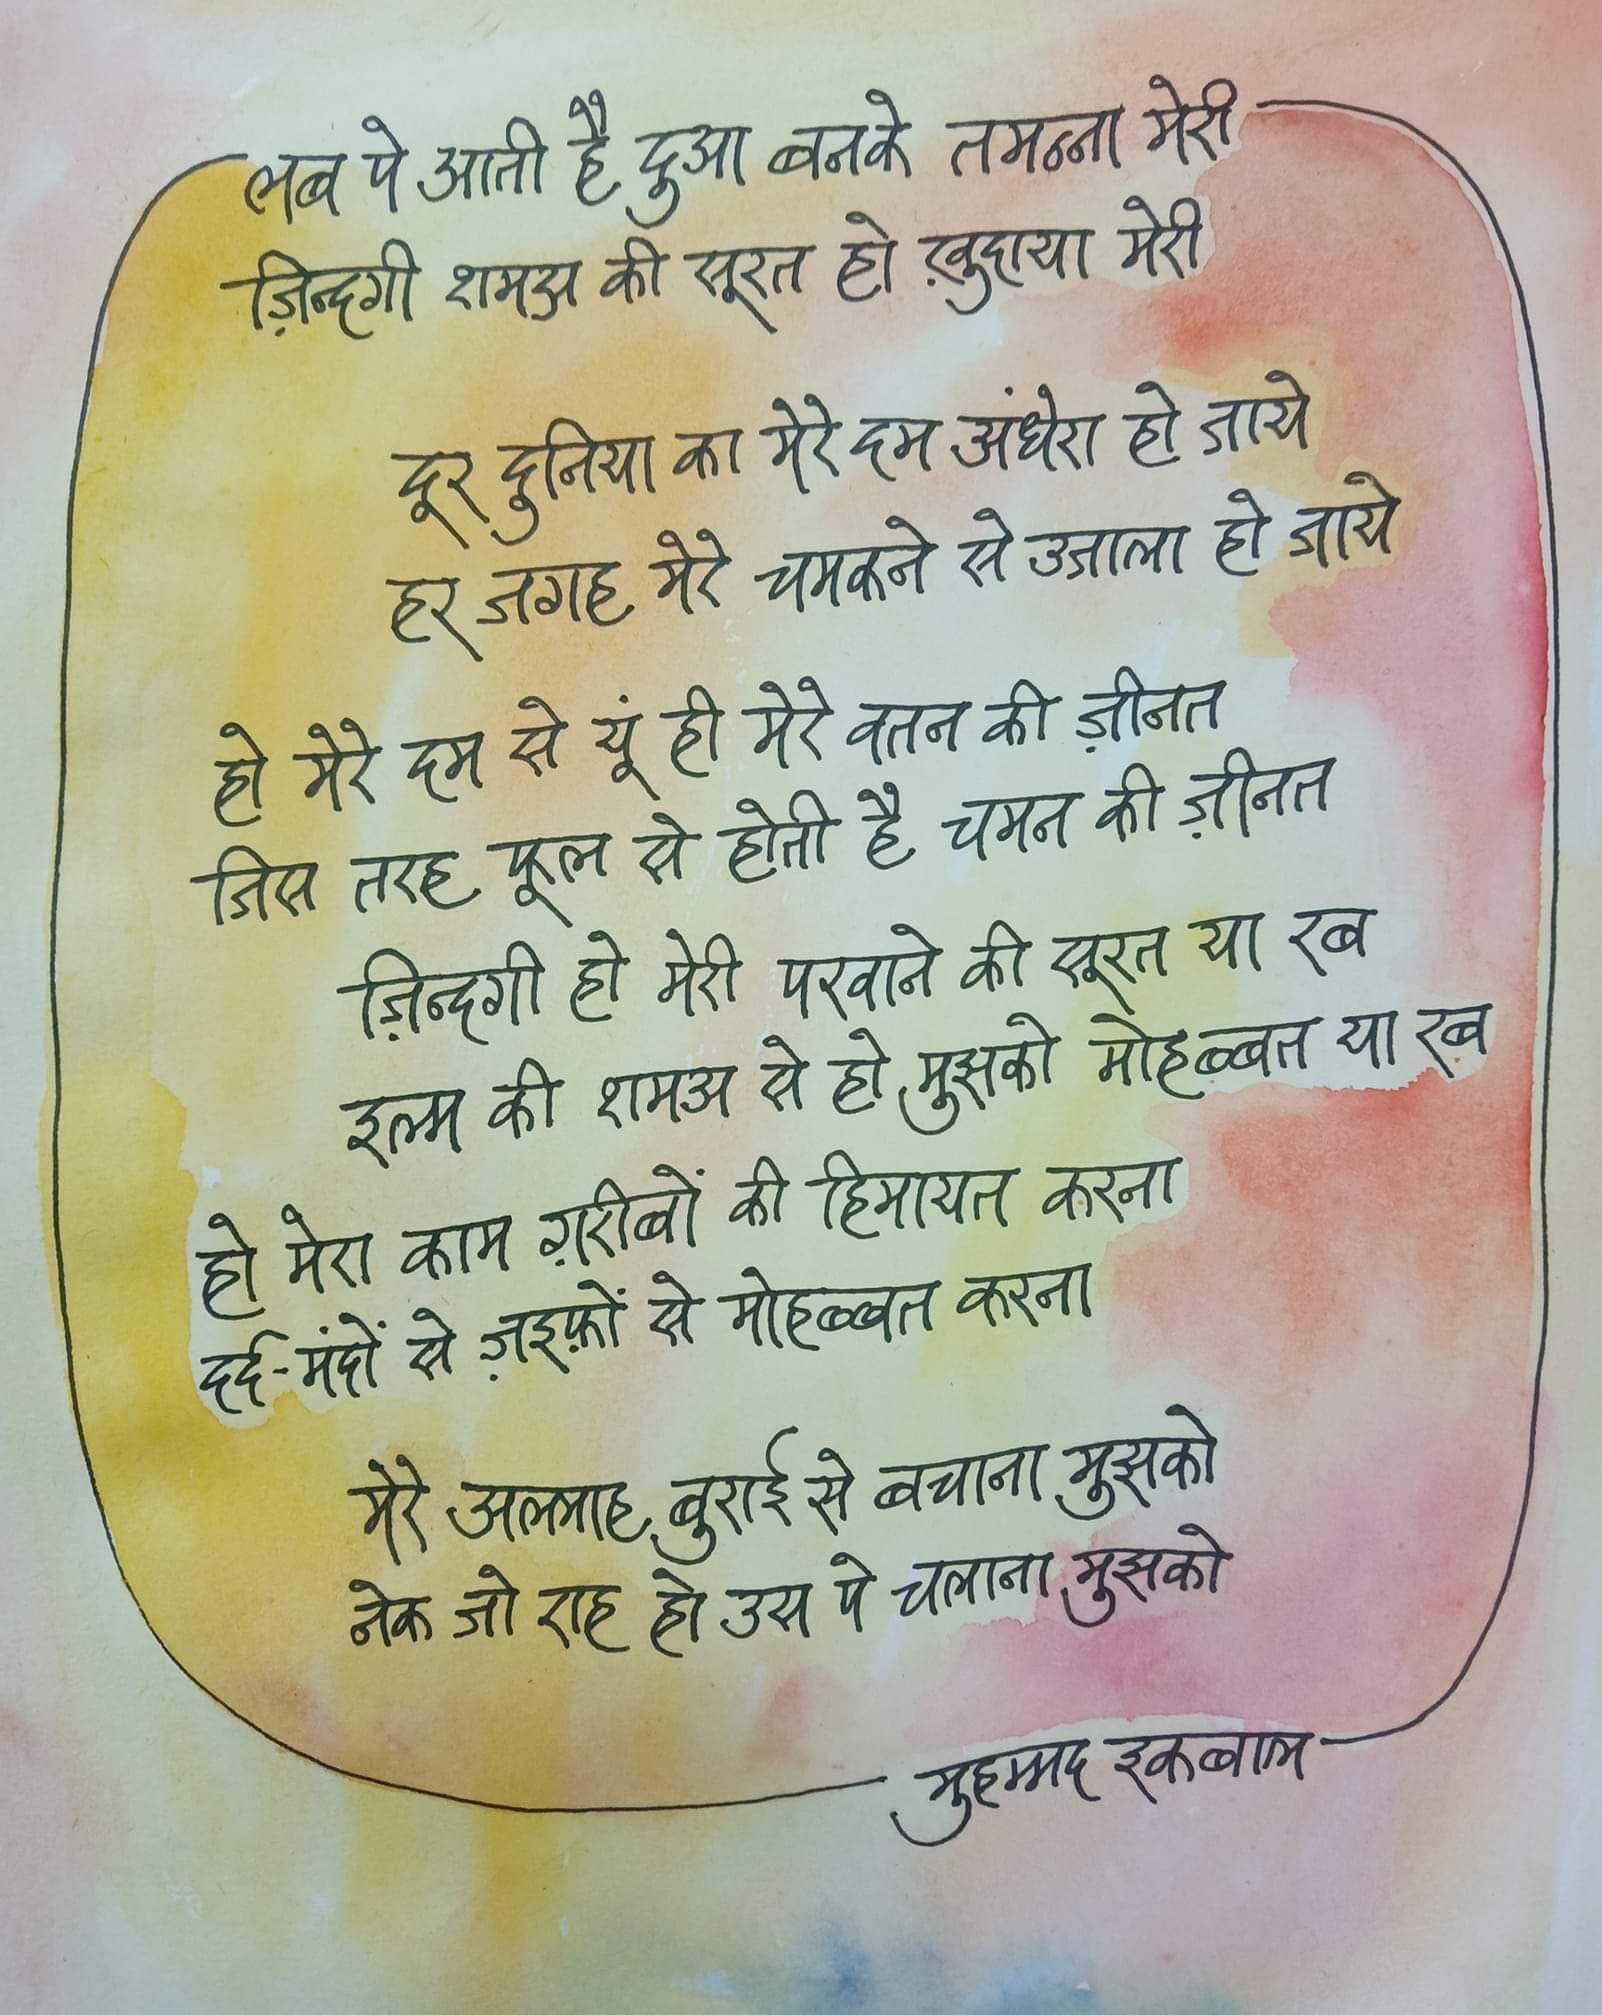 लब पे आती है दुआ बनके तमन्ना मेरी
ज़िन्दगी शमअ की सूरत हो ख़ुदाया मेरी
दूर दुनिया का मेरे दम अंधेरा हो जाये
हर जगह मेरे चमकने से उजाला हो जाये
हो मेरे दम से यूं ही मेरे वतन की ज़ीनत
जिस तरह फूल से होती है चमन की ज़ीनत
ज़िन्दगी हो मेरी परवाने की सूरत या रब
इल्म की शमअ से हो मुझको मोहब्बत या रब
हो मेरा काम ग़रीबों की हिमायत करना
दर्द-मंदों से ज़इफ़ों से मोहब्बत करना
मेरे अल्लाह बुराई से बचाना मुझको
नेक जो राह हो उस पे चलाना मुझको
मुहम्मद इकबाल